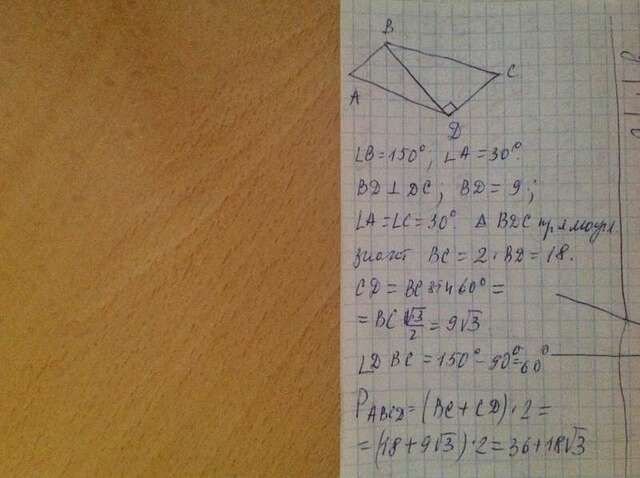 B
A
C
D
∠B=150°, ∠A=30°.
BD ⊥ DC; BD = 9;
∠A=∠C=30°. Δ BDC
значит BC = 2·BD = 18.
CD = BC sin 60° =
= BC √3/2 = 9√3
∠DBC = 150° - 90° = 60°
P ABCD = (BC + CD)·2 =
= (18 + 9√3)·2 = 36+18√3